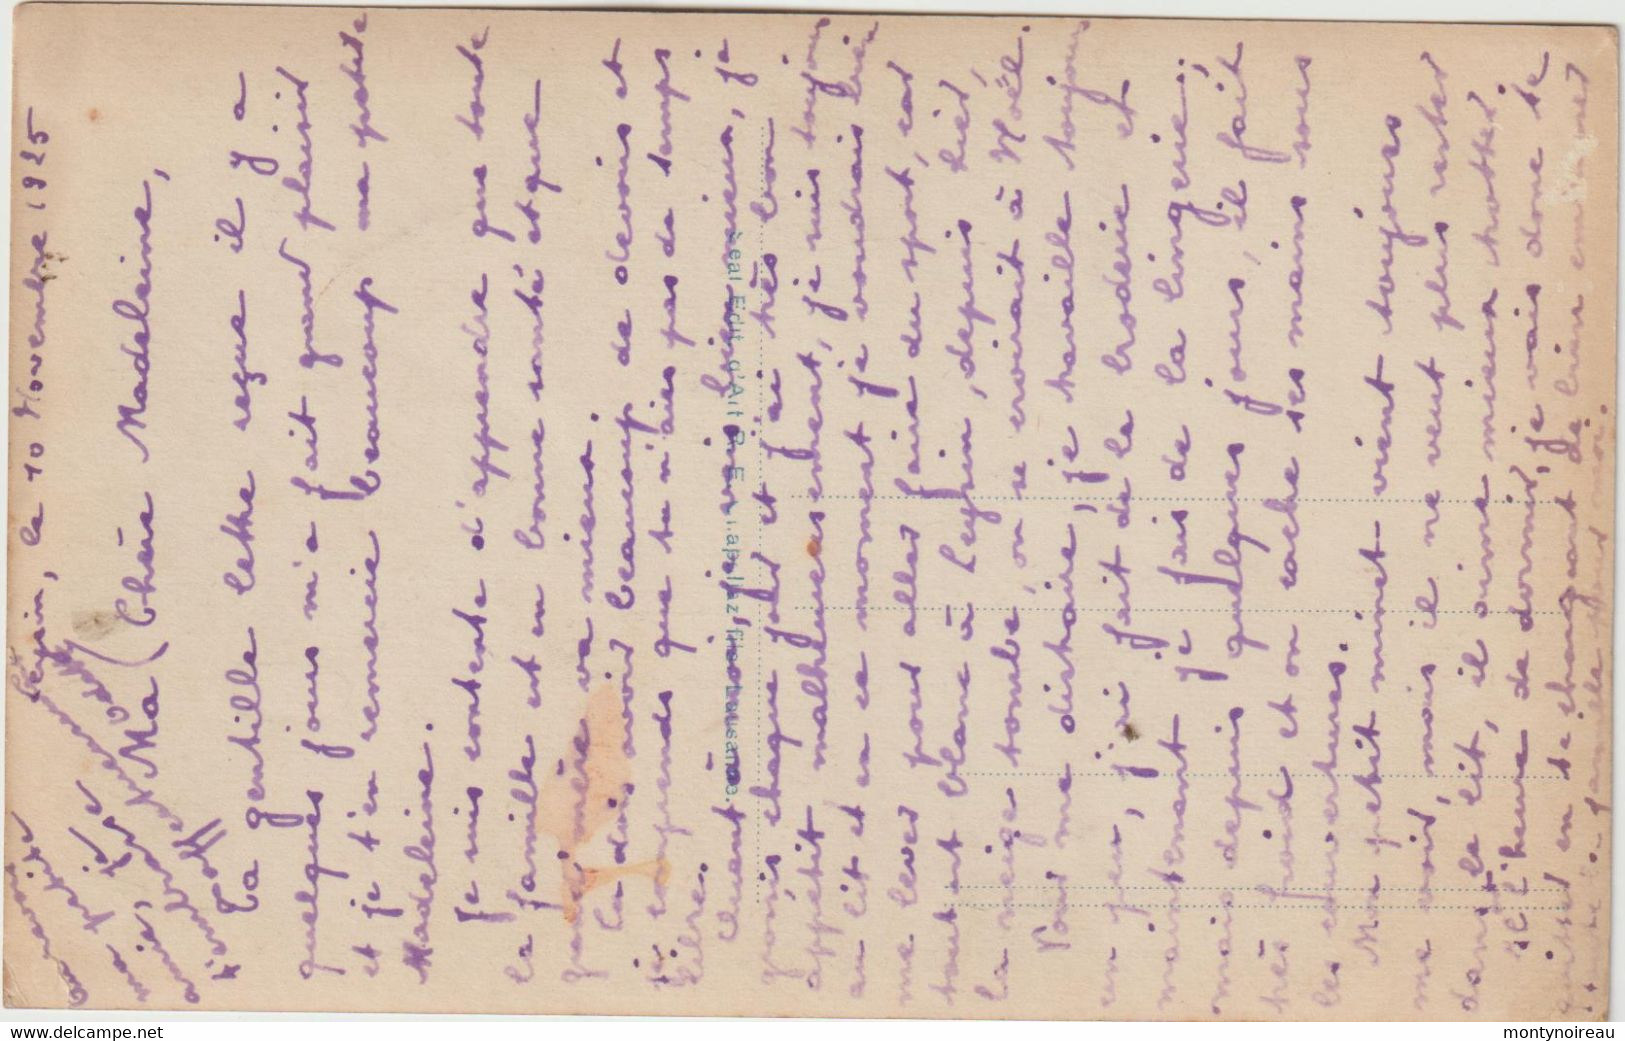 Leysin, le 10 Novembre 1925
Ma Chère Madeleine,
Ta gentille lettre reçue il y a
quelques jours m'a fait grand plaisir
et je t'en remercie beaucoup ma petite
Madeleine.
Je suis contente d'apprendre que toute
la famille est en bonne santé et que
grand'mère va mieux.
Tu dois avoir beaucoup de devoirs et
je comprends que tu n'aies pas de temps
libre.
Quant à moi, je vais bien mieux, je
grossis chaque jour et j'ai très bon
appétit malheureusement, je suis toujours
au lit et en ce moment je voudrais bien
me lever pour aller faire du sport, car
tout est blanc à Leysin, depuis hier,
la neige tombe, on se croirait à Noël.
Pour me distraire, je travaille toujours
un peu, j'ai fait de la broderie et
maintenant je fais de la lingerie;
mais depuis quelques jours, il fait
très froid et on cache ses mains sous
les couvertures.
Mon petit minet vient toujours
me voir, mais il ne veut plus rester
dans le lit, il aime mieux trotter.
C'est l'heure de dormir, je vais donc te
quitter en te chargeant de bien embrasser
toute la famille pour moi.
ma petite
amie
Real Edit. d'Art
Lausanne.
www.delcampe.net
montynoireau